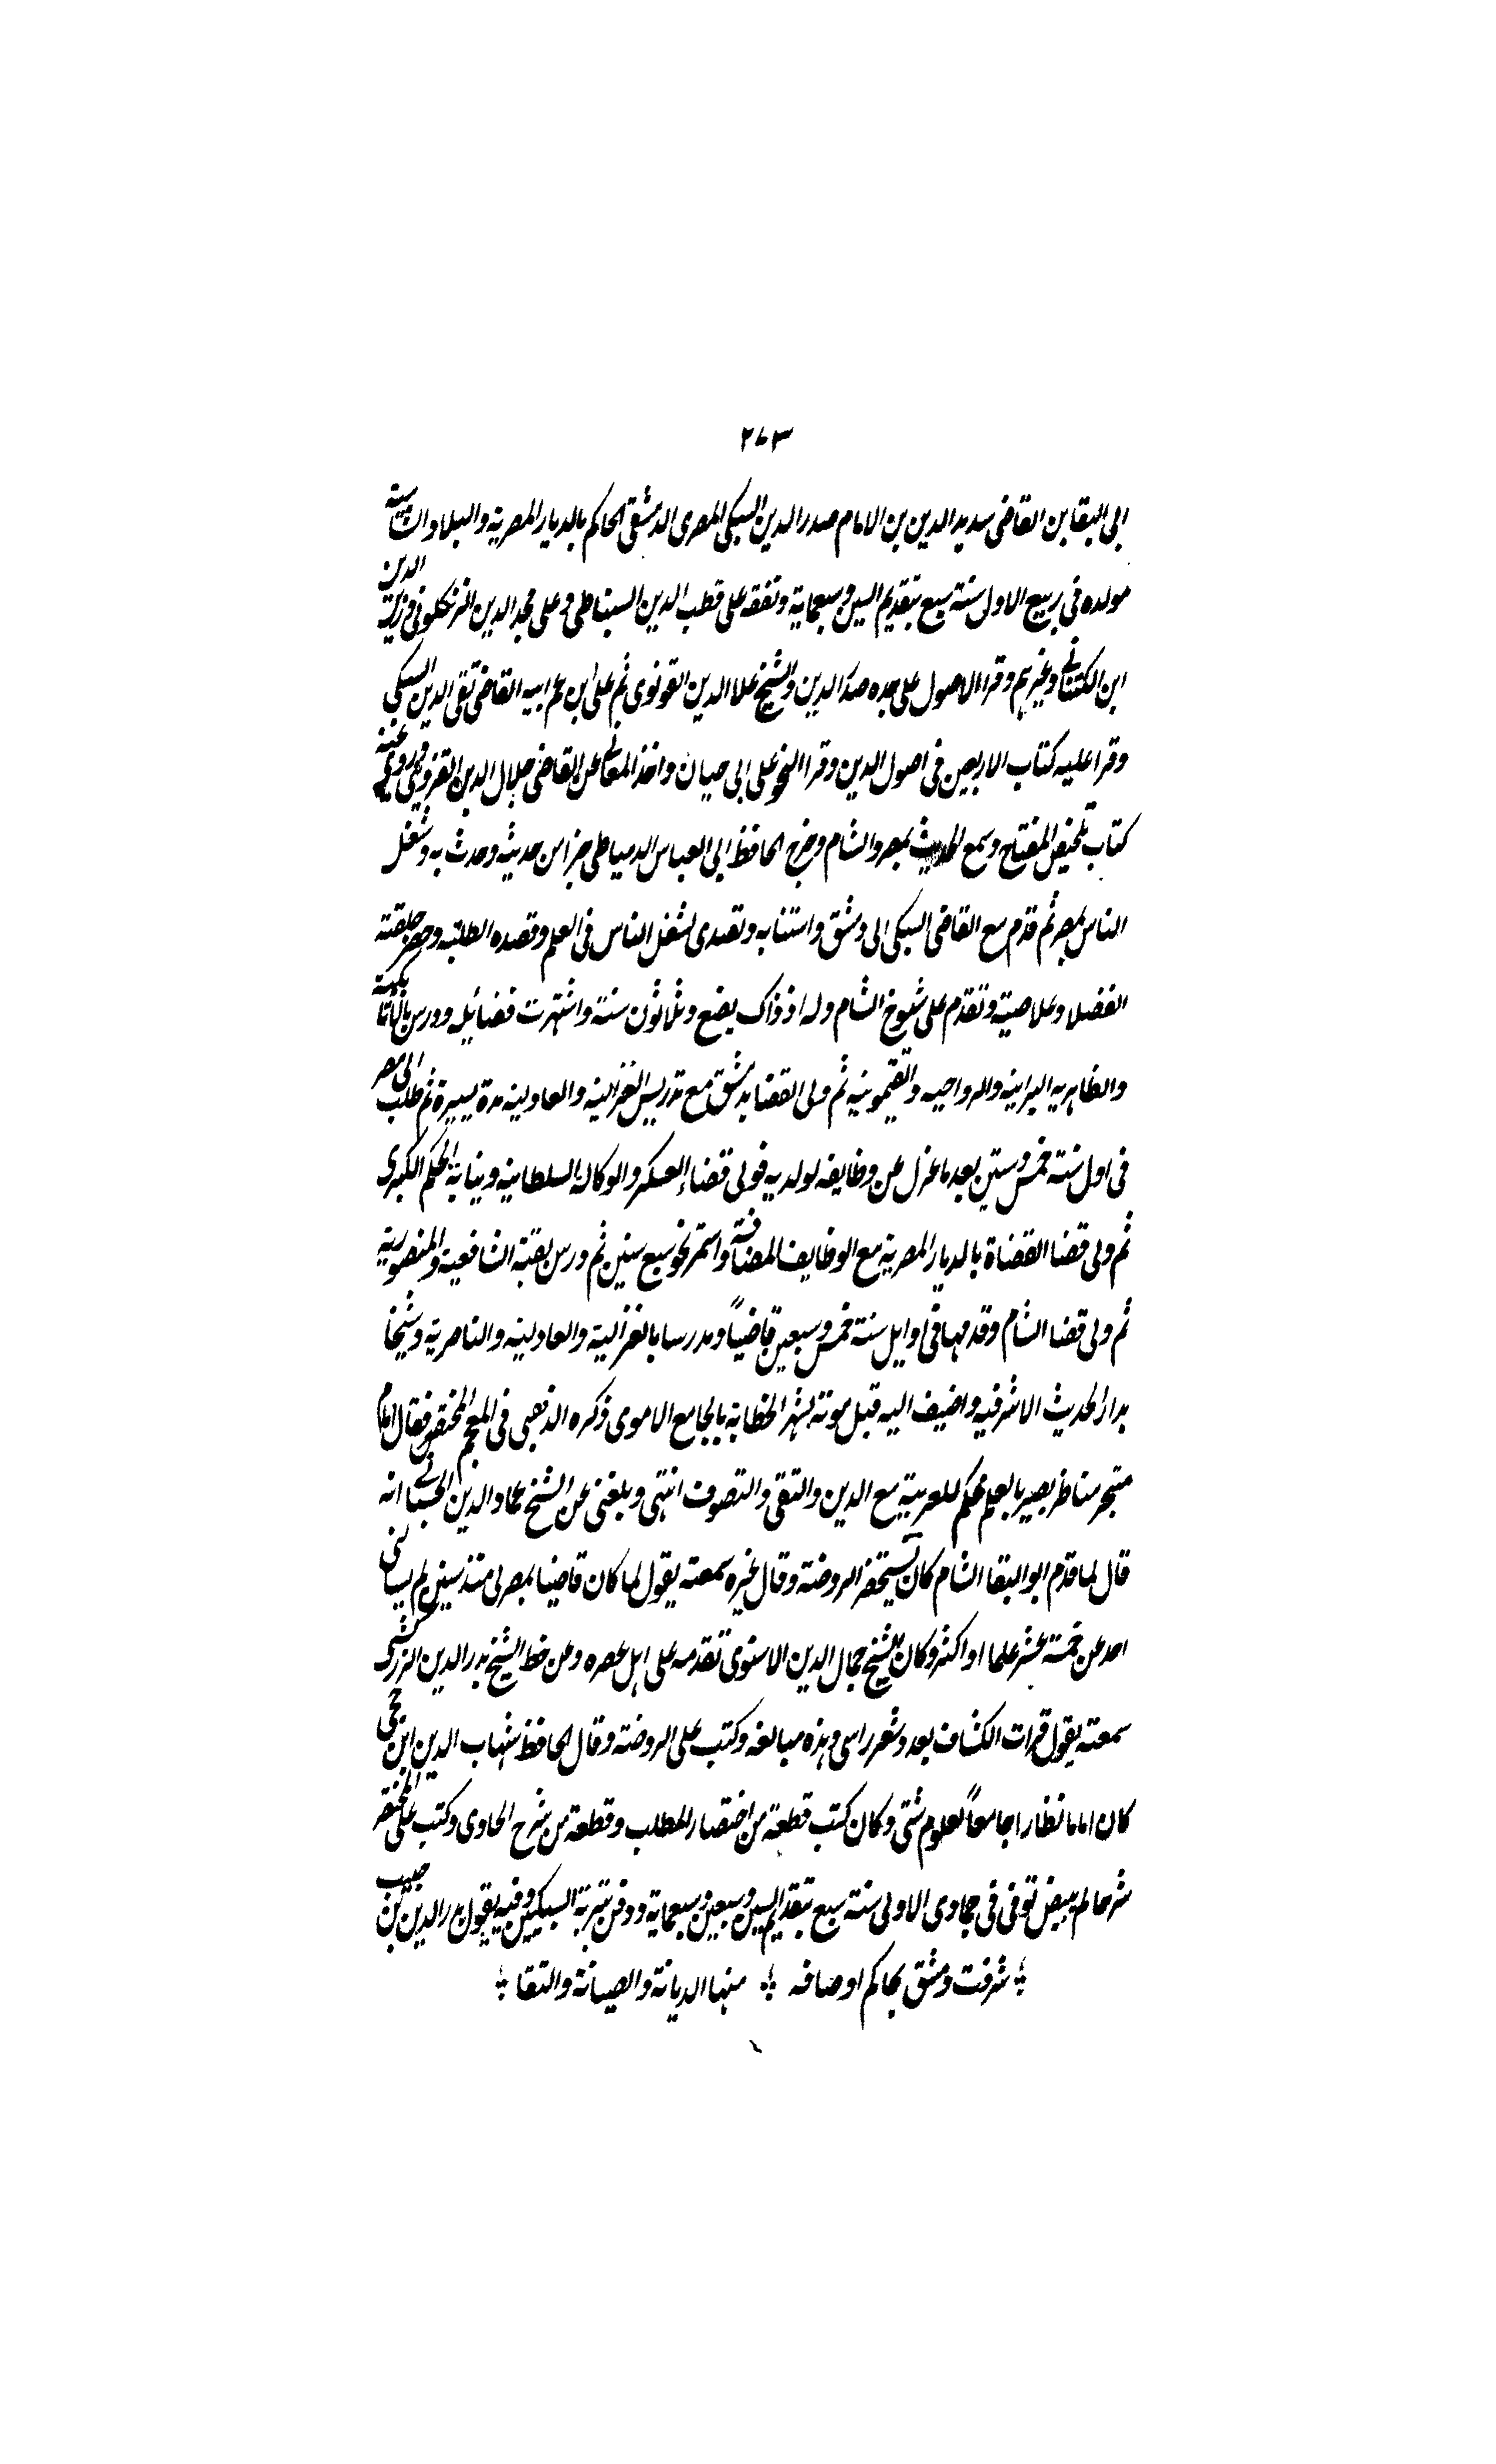 ٢٧٣
ابى البقا بن القاضى سديد الدين بن الامام صدر الدين السبكى المصرى الدمشقى الحاكم بالديار المصرية والبلاد الشامية
مولده فى ربيع الاول سنة سبع بتقديم السين وسبعماية وتفقه على قطب الدين السنباطى وعلى مجد الدين الزنكلونى وزين الدين
ابن الكتنانى وغيرهم وقرا الاصول على جده صدر الدين والشيخ علا الدين القونوى ثم على ابن عم ابيه القاضى تقى الدين السبكى
وقرا عليه كتاب الاربعين فى اصول الدين وقرا النحو على ابى حيان واخذ المعانى عن القاضى جلال الدين القزوينى وروى عنه
كتاب تلخيص المفتاح وسمع الحديث بمصر والشام وخرج الحافظ ابى العباس الدمياطى جزا من حديثه وحدث به وشغل
الناس بمصر ثم قدم مع القاضى السبكى الى دمشق واستنابه وتصدى لشغل الناس فى العلم وقصده الطلبه وحضر حلقته
الفضلا وعلا صيته وتقدم على شيوخ الشام وله اذ ذاك بضع وثلاثون سنة واشتهرت فضايله ودرس بالاتابكية
والظاهريه البرانيه والرواحيه والقيمونيه ثم ولى القضا بدمشق مع تدريس الغزاليه والعادليه مدة يسيرة ثم طلب الى مصر
فى اول سنة خمس وستين بعد ما عزل عن وظايفه لولديه فولى قضاء العسكر والوكالة السلطانيه ونيابة الحكم الكبرى
ثم ولى قضا القضاة بالديار المصرية مع الوظايف المضافة واستمر نحو سبع سنين ثم درس بقبة الشافعية والمنصورية
ثم ولى قضا الشام وقدمها فى اوايل سنة خمس وسبعين قاضياً ومدرسا بالغزالية والعادليه والناصرية وشيخا
بدار الحديث الاشرفيه واضيف اليه قبل موته بشهر الخطابة بالجامع الاموى ذكره الذهبى فى المعجم المختص فقال امام
متبحر مناظر بصير بالعلم محكم للعربية مع الدين والتقى والتصوف انتهى وبلغنى عن الشيخ عماد الدين الحسبانى انه
قال لما قدم ابو البقا الشام كان يستحضر الروضة وقال غيره سمعته يقول لما كان قاضيا بمصر لى منذ سنين لم يسالنى
احد عن خمسة عشر علما او اكثر وكان الشيخ جمال الدين الاسنوى تقدمه على اهل عصره وعن خط الشيخ بدر الدين الزركشى
سمعته يقول قرات الكشاف بعدد شعر راسى وهذه مبالغه وكتب على الروضة وقال الحافظ شهاب الدين ابن حجى
كان اماما نظارا جامعاً لعلوم شتى وكان كتب قطعة من اختصار المطلب وقطعة من شرح الحاوى وكتب على المختصر
شرحا لم يبيض توفى فى جمادى الاولى سنة سبع بتقديم السين وسبعين وسبعماية ودفن بتربة السبكيين وفيه يقول بدر الدين بن حبيب
شرفت دمشق بحاكم اوصافه منها الديانة والصيانة والتقا